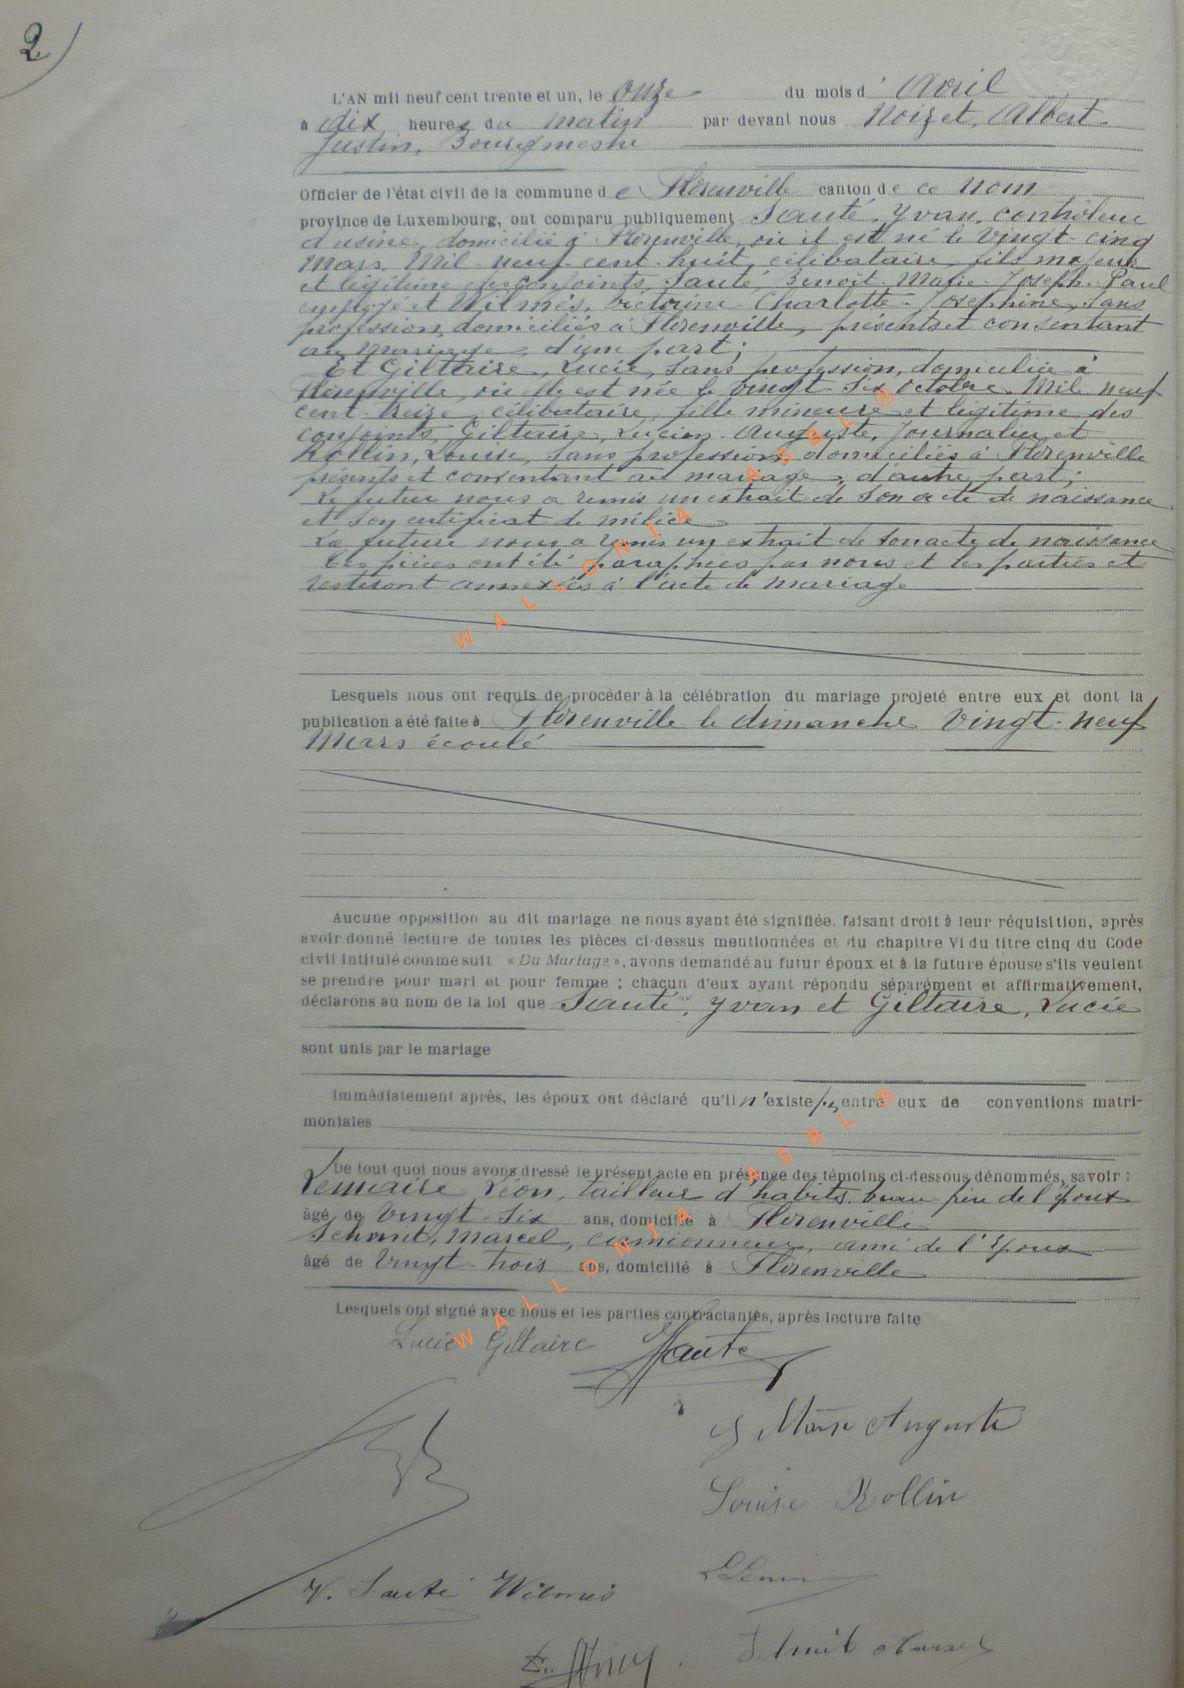 2)
L'AN mil neuf cent trente et un, le Onze du mois d' Avril
à dix heures du matin par devant nous Noizet, Albert
Justin, Bourgmestre
Officier de l'état civil de la commune de Florenville canton de ce nom
province de Luxembourg, ont comparu publiquement Santé, Yvan, contrôleur
d'usine, domicilié à Florenville, où il est né le vingt-cinq
Mars Mil neuf cent huit, célibataire, fils majeur
et légitime des conjoints, Santé, Benoit-Marie-Joseph-Paul
employé et Wilmés, Victorine-Charlotte-Joséphine, sans
profession, domiciliés à Florenville, présents et consentant
au mariage, d'une part;
Et Giltaire, Lucie, sans profession, domiciliée à
Florenville, où elle est née le vingt-six octobre Mil neuf
cent treize, célibataire, fille mineure et légitime des
conjoints, Giltaire, Lucien-Auguste, journalier et
Rollin, Louise, sans profession, domiciliés à Florenville
présents et consentant au mariage, d'autre part;
Le futur nous a remis un extrait de son acte de naissance
et son certificat de milice
La future nous a remis un extrait de son acte de naissance
Ces pièces ont été paraphées par nous et les parties et
resteront annexées à l'acte de mariage
Lesquels nous ont requis de procéder à la célébration du mariage projeté entre eux et dont la
publication a été faite à Florenville le dimanche vingt-neuf
Mars écoulé
Aucune opposition au dit mariage ne nous ayant été signifiée, faisant droit à leur réquisition, après
avoir donné lecture de toutes les pièces ci-dessus mentionnées et du chapitre VI du titre cinq du Code
civil intitulé comme suit « Du Mariage », avons demandé au futur époux et à la future épouse s'ils veulent
se prendre pour mari et pour femme ; chacun d'eux ayant répondu séparément et affirmativement,
déclarons au nom de la loi que Santé, Yvan et Giltaire, Lucie
sont unis par le mariage
Immédiatement après, les époux ont déclaré qu'il n'existe pas entre eux de conventions matri-
moniales
De tout quoi nous avons dressé le présent acte en présence des témoins ci-dessous dénommés, savoir :
Lemaire, Léon, tailleur d'habits, beau père de l'époux
âgé de vingt-six ans, domicilié à Florenville
Schmit, Marcel, camionneur, ami de l'Epoux
âgé de vingt-trois ans, domicilié à Florenville
Lesquels ont signé avec nous et les parties contractantes, après lecture faite
Lucie Giltaire Santé
Auguste
Louise Rollin
V. Santé Wilmés
WALLONIA ASBL ®
WALLONIA ASBL ®